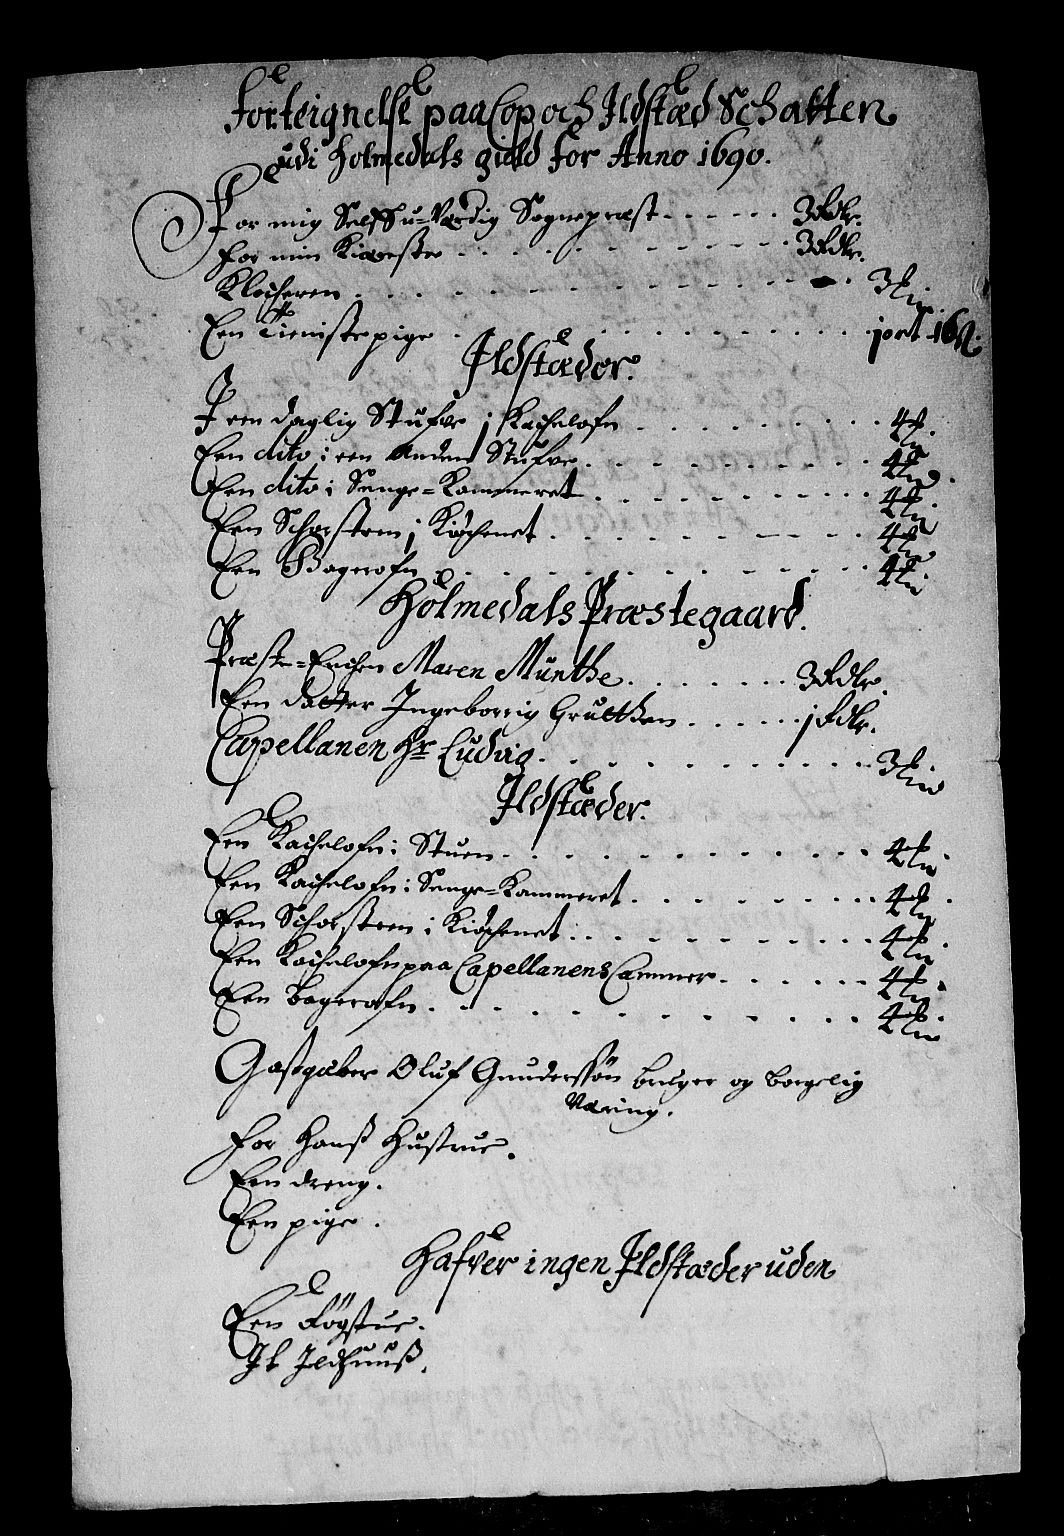 Forteignelse paa Cop och Ildstæd Schatten
udi Holmedals gield for Anno 1690.
For mig Self Su=Værdig Sognepræst . . . . . . 3 Rdlr.
For min Kiæreste . . . . . . . . . . 3 Rdlr.
Klocheren . . . . . . . . . . . . .
Een Tieniste pige . . . . . . . . . . . . j ort 16 s.
Ildstæder.
I een daglig Stufve j Kachelofn . . . . . . . . . 4
Een dito i een anden Stufve . . . . . . . . . 4
Een dito i Senge=Kammeret . . . . . . . . . 4
Een Schorsteen j Kiøchenet . . . . . . . . . 4
Een Bagerofn . . . . . . . . . . . 4
Holmedals Præstegaard.
Præste=Enchen Maren Munthe . . . . . . . 3 Rdlr.
Een datter Ingeborrig Grutthen . . . . . . j Rdlr.
Capellanen Hr Ludvig . . . . . . . . . . . 3
Ildstæder.
Een Kachelofn i Stuen . . . . . . . . . . . . 4
Een Kachelofn i Senge=Kammeret . . . . . . . . . 4
Een Schorsteen i Kiøchenet . . . . . . . . . . 4
Een Kachelofn paa Capellanens Cammer . . . . . . 4
Een bagerofn . . . . . . . . . . . . 4
Gastgæber Oluf Gunderssøn bruger og borgelig
Næring.
For Hanß Hustrue.
Een dreng.
Een pige.
Hafver ingen Ildstæder uden
Een Røgstue.
It Ildhuuß.